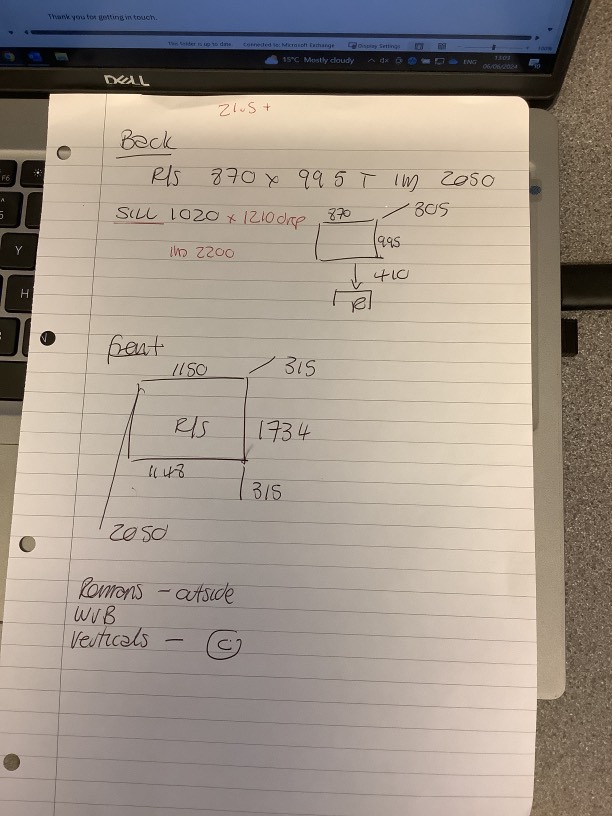 Thank you for getting in touch.
This folder is up to date. Connected to: Microsoft Exchange Display Settings
15°C Mostly cloudy ENG 13:03
06/06/2024
DELL
F6
Y
H
21.5 +
Back
R/S 870 x 995 T IM 2050
SILL 1020 x 1210 drop
870 305
995
IM 2200
410
R
front
1150 315
R/S 1734
1148
315
2050
Romans - outside
WVB
Verticals - C